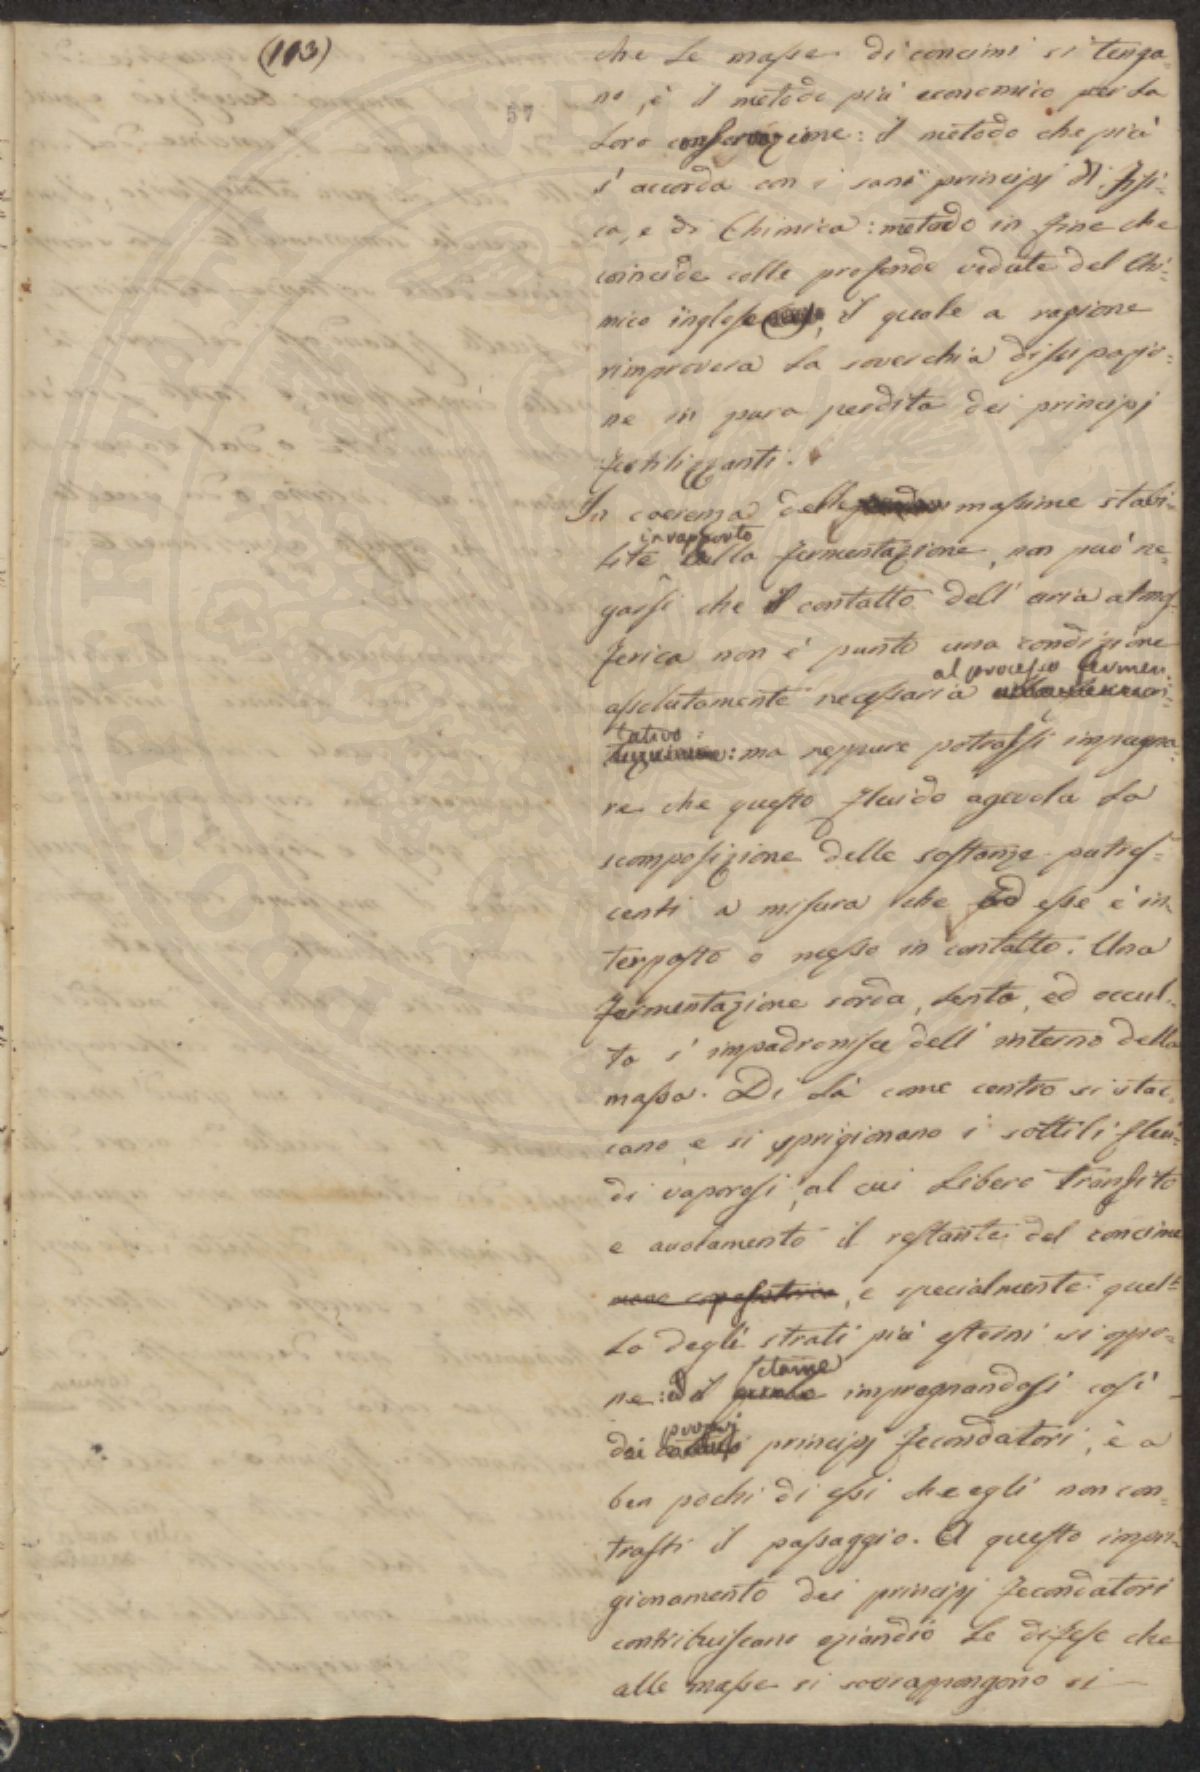 (113)
57
che le masse di concimi si tenga-
no, è il metodo più economico per la
loro conservazione: il metodo che più
s' accorda con i sani principj di Fisi-
ca, e di Chimica: metodo in fine che
coincide colle profonde vedute del Chi-
mico inglese, il quale a ragione
rimprovera la soverchia dissipazio-
ne in pura perdita dei principj
fertilizzanti.
In coerenza delle massime stabi-
in rapporto
lite alla fermentazione, non può ne-
garsi che il contatto dell' aria atmos-
ferica non è punto una condizione
al processo fermen-
assolutamente necessaria
tativo
: ma neppure potrassi impugna-
re che questo fluido agevola la
scomposizione delle sostanze putres-
centi a misura che ad esse è in-
terposto o messo in contatto. Una
fermentazione sorda, lenta, ed occul-
ta s' impadronisce dell' interno della
massa. Di là come centro si stac-
cano e si sprigionano i sottili flui-
di vaporosi, al cui libero transito
e avolamento il restante del concime
, e specialmente quel-
lo degli strati più esterni si oppo-
letame
ne: ed il impregnandosi così
proprj
dei principj fecondatori, è a
ben pochi di essi che egli non con-
trasti il passaggio. A questo impri-
gionamento dei principj fecondatori
contribuiscono eziandio le difese che
alle masse si sovrappongono si